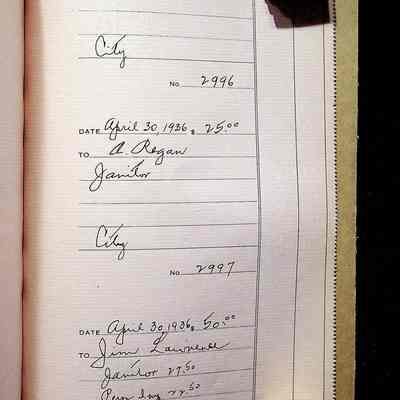 City
No 2996
DATE April 30, 1936, $ 25.00
TO A. Regan
Janitor
City
No 2997
DATE April 30, 1936, $ 50.00
TO Jim Lawrence
Janitor 27.50
22.50